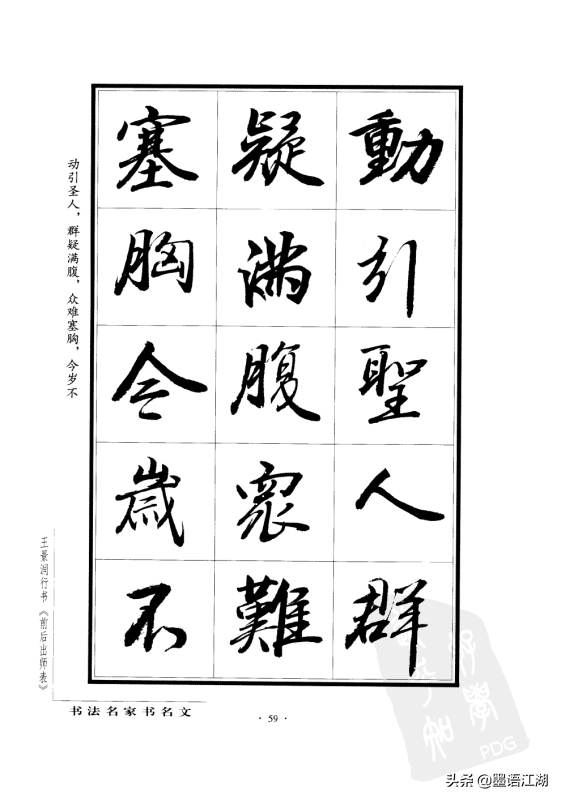 動引聖人群
疑滿腹衆難
塞胸今歲不
动引圣人，群疑满腹，众难塞胸，今岁不
王景润行书《前后出师表》
书法名家书名文
·59·
PDG
头条@墨语江湖